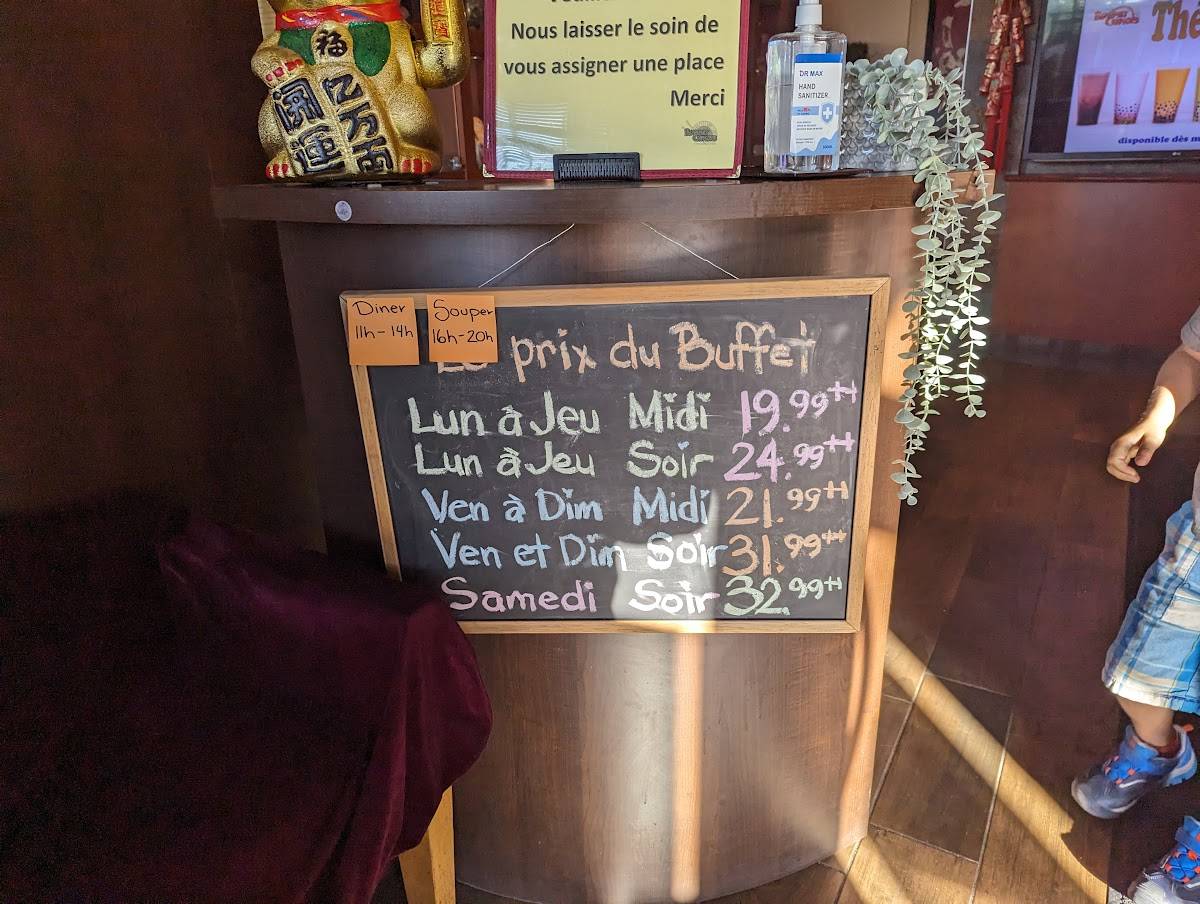 福
開運
Nous laisser le soin de
vous assigner une place
Merci
DR MAX
HAND
SANITIZER
The
disponible dès m
Diner
11h - 14h
Souper
16h - 20h
prix du Buffet
Lun à Jeu Midi 19.99
Lun à Jeu Soir 24.99
Ven à Dim Midi 21.99
Ven et Dim Soir 31.99
Samedi Soir 32.99